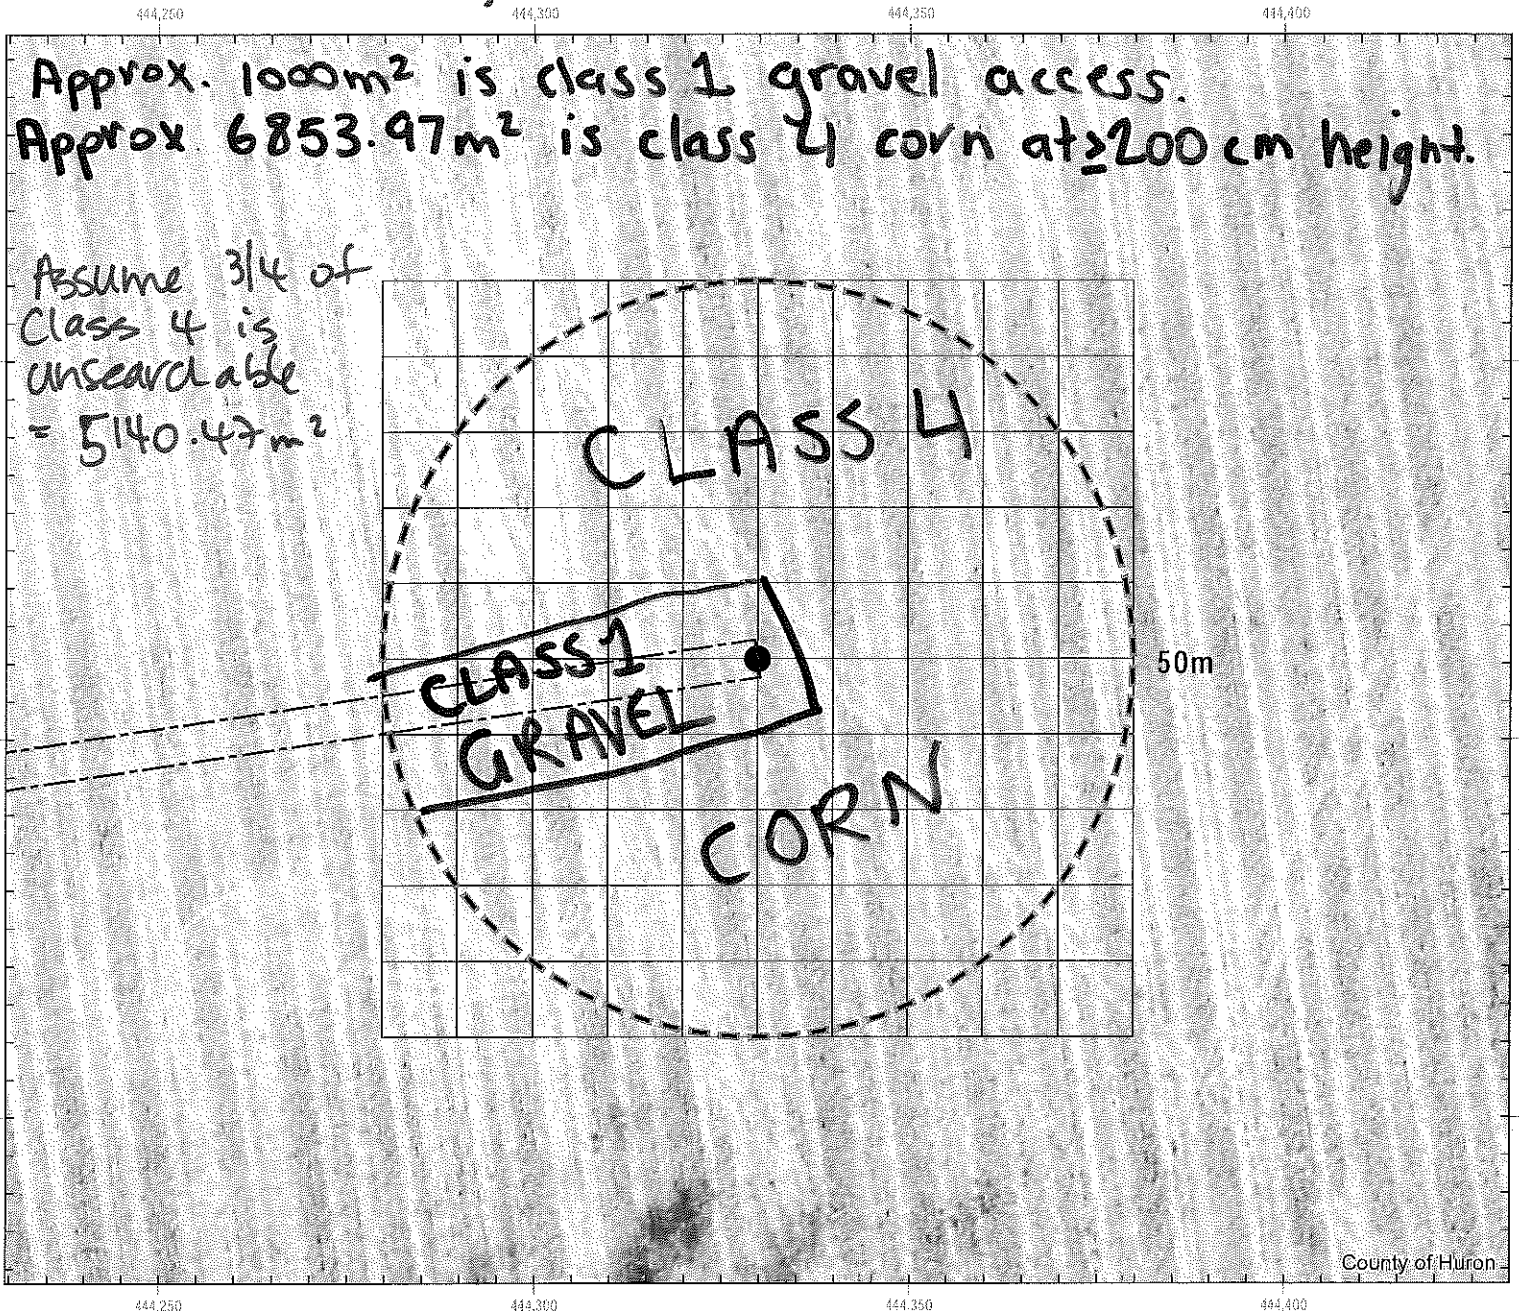 444,250 444,300 444,350 444,400
Approx. 1000m² is class 1 gravel access.
Approx 6853.97m² is class 4 corn at ≥200 cm height.
Assume 3/4 of
Class 4 is
unsearchable
= 5140.47m²
CLASS 4
CLASS 1
GRAVEL
50m
CORN
County of Huron
444,250 444,300 444,350 444,400